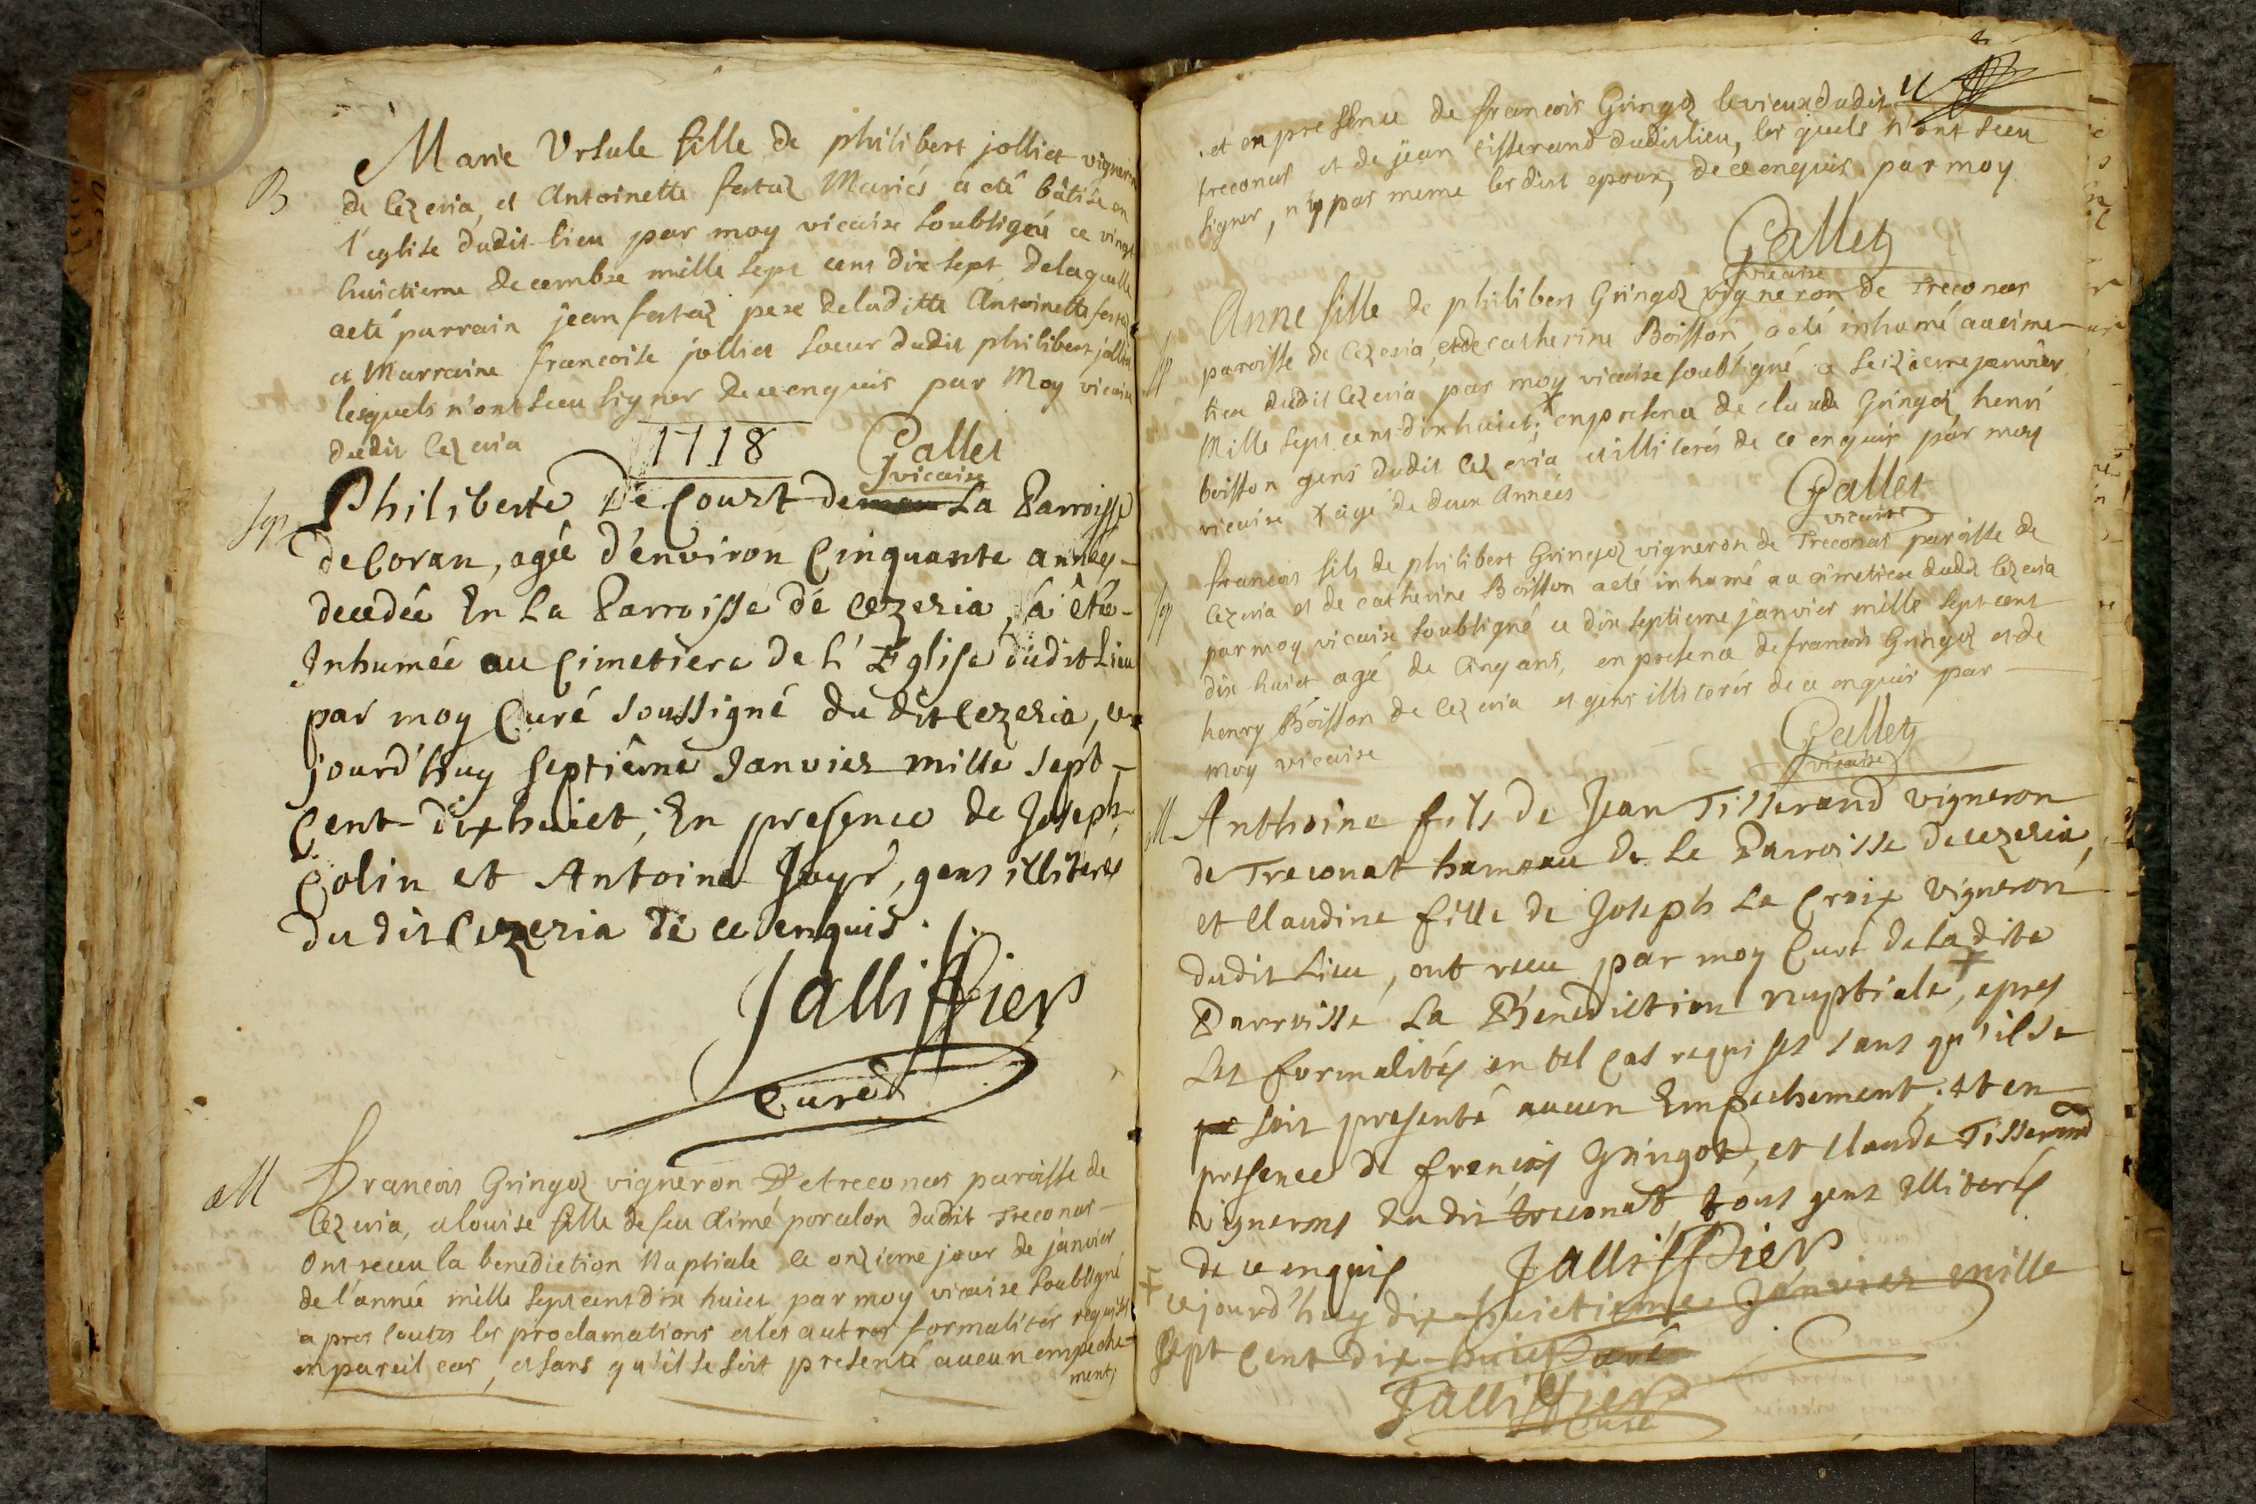 B
Marie Ursule fille de philibert jolliet vigneron
de Cézeria, et Antoinette fertaz Mariés a eté bâtisé en
l'eglise dudit lieu par moy vicaire soubsigné ce vingt
huictieme decembre mille sept cens dix sept, delaquelle
aeté parrain jean fertaz pere deladitte Antoinette fertaz
et Marraine francoise jolliet soeur dudit philibert jolliet
lesquels n'ont sceu signer de ce enquis par Moy vicaire
dudit Cézeria
Gallet
vicaire
1718
Sep
Philiberte De Court de la Parroisse
de Coran, agée d'environ Cinquante années
decedée En La Parroisse de Cezeria, a êté
Inhumée au Cimetiere de L'Eglise dudit Lieu
par moy Curé soussigné du dit Cezeria, ce
jourd'huy septiême Janvier mille sept
Cent dix huict; En presence de Joseph
Colin et Antoine Jayr, gens illiterés
du dit Cezeria de ce enquis.
Jalliffier
Curé
M
Francois Gringoz vigneron De treconas paroisse de
Cézeria, et louise fille de feu Aimé poralon dudit Treconas
Ont receu la benediction Nuptiale ce onzieme jour de janvier
de l'année mille sept cens dix huict par moy vicaire soubsigné
apres toutes les proclamations et les autres formalités requises
en pareil cas, et sans qu'il se soit presenté aucun empeche-
ment,
et en presence de francois Gringoz le vieux dudit
treconas et de jean tisserand dudit lieu, les quels n'ont sceu
signer, ny par meme les dits epoux, de ce enquis par moy
Gallet
vicaire
Sep
Anne fille de philibert Gringoz vigneron de Treconas
paroisse de Cezeria, et de Catherine Boisson, a eté inhumé au cime-
tiere dudit Cézeria par moy vicaire soubsigné ce seizieme janvier
Mille sept cens dix huict, x en presence de claude Gringoz, henri
boisson gens dudit Cézeria et illiterés de ce enquis par moy
vicaire x agé de deux Années
Gallet
vicaire
Sep
francois fils de philibert Gringoz vigneron de Treconas paroisse de
Cezeria et de catherine Boisson a eté inhumé au cimetiere dudit Cézeria
par moy vicaire soubsigné ce dix septieme janvier mille sept cent
dix huict agé de Cinq ans, en presence de francois Gringoz et de
henry Boisson de Cezeria et gens illiterés de ce enquis par
moy vicaire
Gallet
vicaire
M
Anthoine fils de Jean Tisserand vigneron
de Treconat hameau de la Parroisse de cezeria,
et Claudine fille de Joseph La Croix vigneron
dudit Lieu, ont receu par moy Curé de la dite
Parroisse La Bénédiction nuptiale +, apres
Les formalités en tel Cas requises sans qu'il se
soit presenté aucun Empechement; et en
presence de François Gringot, et Claude Tisserand
vignerons du dit treconat, tous gens illiterés
de ce enquis
Jalliffier
+ cejourd'huy dix-huictieme Janvier mille
sept Cent dix-huict Curé
Jalliffier
Curé